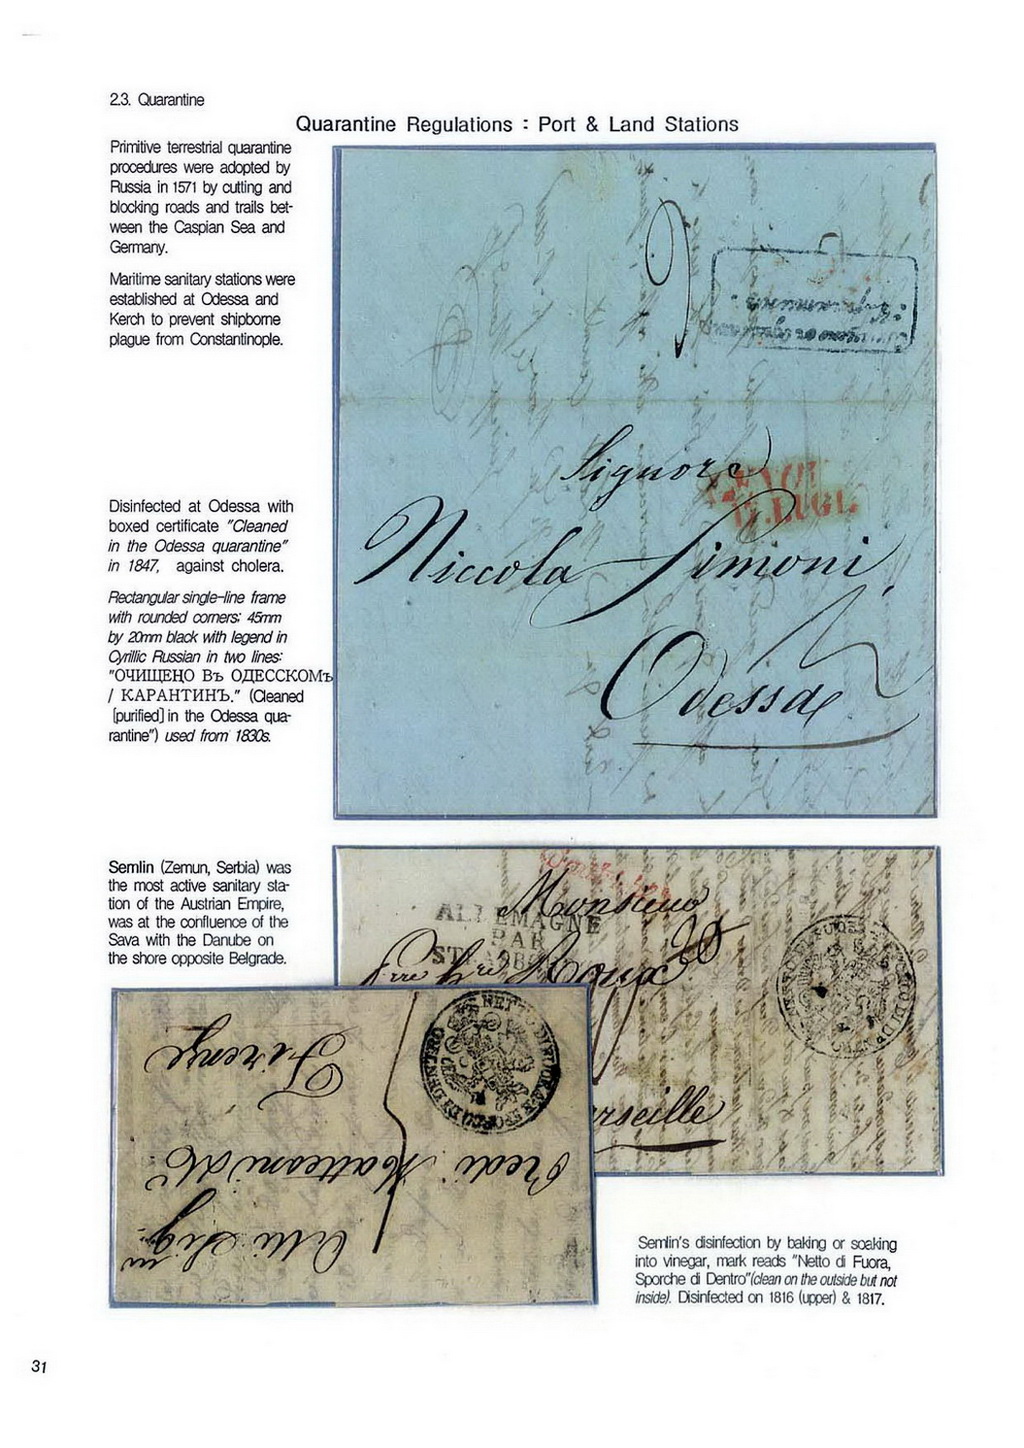 2.3. Quarantine
Quarantine Regulations : Port & Land Stations
Primitive terrestrial quarantine
procedures were adopted by
Russia in 1571 by cutting and
blocking roads and trails bet-
ween the Caspian Sea and
Germany.
Maritime sanitary stations were
established at Odessa and
Kerch to prevent shipborne
plague from Constantinople.
Disinfected at Odessa with
boxed certificate "Cleaned
in the Odessa quarantine"
in 1847, against cholera.
Rectangular single-line frame
with rounded corners: 45mm
by 20mm black with legend in
Cyrillic Russian in two lines:
"ОЧИЩЕНО Въ ОДЕССКОМъ
/ КАРАНТИНЪ." (Cleaned
[purified] in the Odessa qua-
rantine") used from 1830s.
Signore
Niccola Simoni
Odessa
LUGL.
Semlin (Zemun, Serbia) was
the most active sanitary sta-
tion of the Austrian Empire,
was at the confluence of the
Sava with the Danube on
the shore opposite Belgrade.
Monsieur
ALLEMAGNE
PAR
Roux
20
Marseille
NETTO DI FUORA E SPORCO DI DENTRO
Alli Sig
Predi
Firenze
Semlin's disinfection by baking or soaking
into vinegar, mark reads "Netto di Fuora,
Sporche di Dentro"(clean on the outside but not
inside). Disinfected on 1816 (upper) & 1817.
31